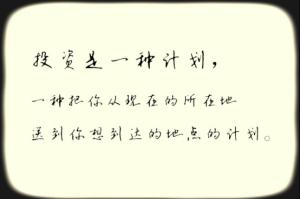 投资是一种计划，
一种把你从现在的所在地
送到你想到达的地点的计划。